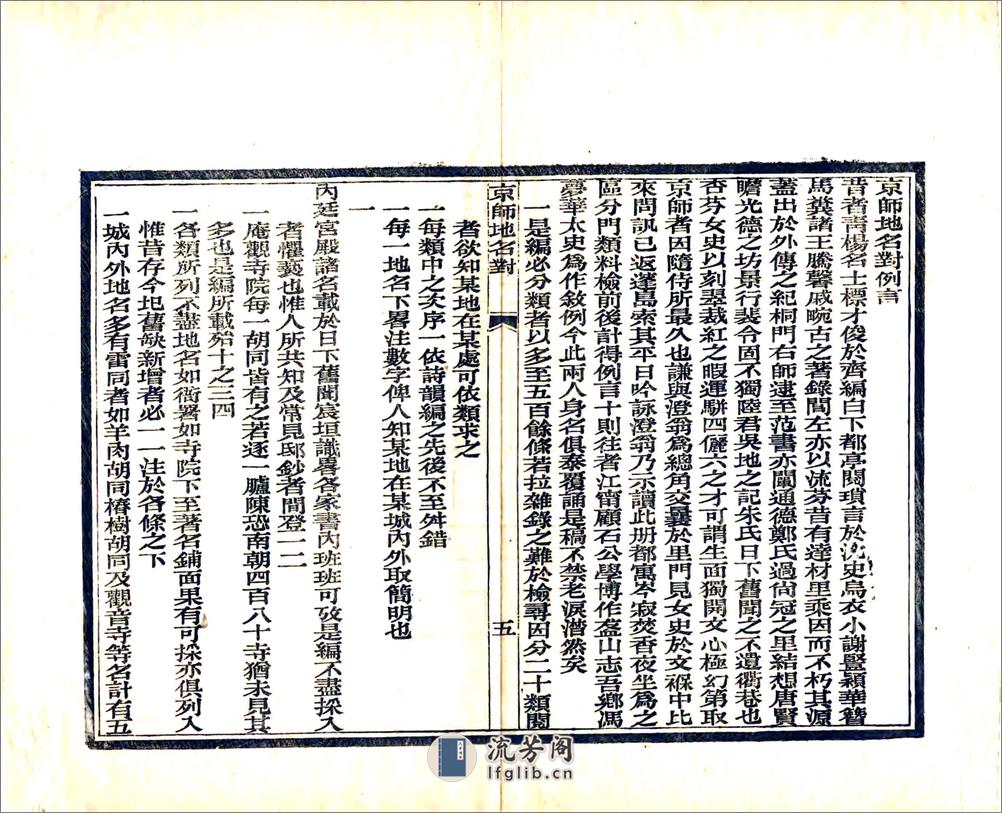 京師地名對例言
昔者青楊名士標才俊於齊編白下都亭闕瑣言於沈史烏衣小謝豎穎華簪
馬糞諸王騰馨戚畹古之著錄閭左亦以流芬昔有達材里乘因而不朽其源
蓋出於外傳之紀桐門右師逮至范書亦闡通德鄭氏過尚冠之里結想唐賢
瞻光德之坊景行裴令固不獨陸君吳地之記朱氏日下舊聞之不遺衢巷也
杏芬女史以刻翠裁紅之暇運駢四儷六之才可謂生面獨開文心極幻第取
京師者因隨侍所最久也謙與澄翁為總角交曩於里門見女史於文褓中比
來問訊已返蓬島索其平日吟詠澄翁乃示讀此册都寓岑寂焚香夜坐為之
區分門類料檢前後計得例言十則往者江甯顧石公學博作盋山志吾鄉馮
夢華太史為作敘例今此兩人身名俱泰覆誦是稿不禁老淚潸然矣
一是編必分類者以多至五百餘條若拉雜錄之難於檢尋因分二十類閱
京師地名對
五
者欲知某地在某處可依類求之
一每類中之次序一依詩韻編之先後不至舛錯
一每一地名下畧注數字俾人知某地在某城內外取簡明也
一
內廷宮殿諸名載於日下舊聞宸垣識畧各家書內班班可攷是編不盡採入
者懼褻也惟人所共知及常見邸鈔者間登一二
一庵觀寺院每一胡同皆有之若逐一臚陳恐南朝四百八十寺猶未見其
多也是編所載殆十之三四
一各類所列不盡地名如衙署如寺院下至著名鋪面果有可採亦俱列入
惟昔存今圮舊缺新增者必一一注於各條之下
一城內外地名多有雷同者如羊肉胡同椿樹胡同及觀音寺等名計有五
流芳阁
lfglib.cn